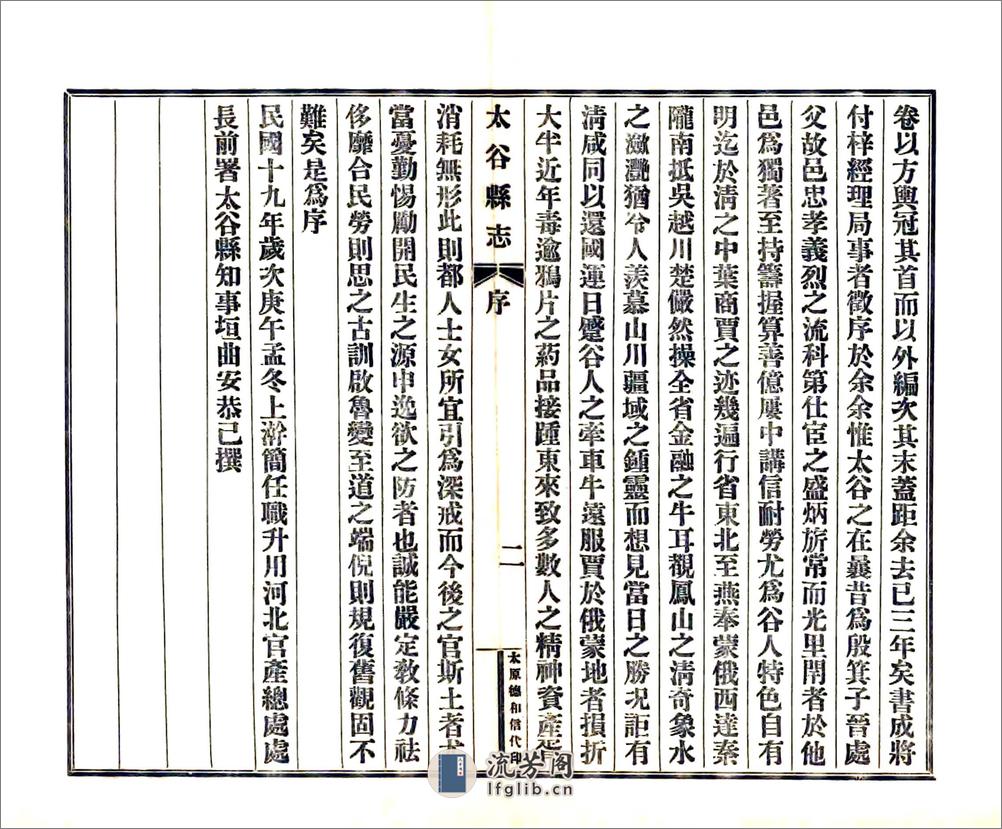 卷以方輿冠其首而以外編次其末蓋距余去已三年矣書成將
付梓經理局事者徵序於余余惟太谷之在曩昔爲殷箕子晉處
父故邑忠孝義烈之流科第仕宦之盛炳旂常而光里閈者於他
邑爲獨著至持籌握算善億屢中講信耐勞尤爲谷人特色自有
明迄於淸之中葉商賈之迹幾遍行省東北至燕奉蒙俄西達秦
隴南抵吳越川楚儼然操全省金融之牛耳觀鳳山之淸奇象水
之瀲灧猶令人羨慕山川疆域之鍾靈而想見當日之勝况詎有
淸咸同以還國運日蹙谷人之牽車牛遠服賈於俄蒙地者損折
大半近年毒逾鴉片之葯品接踵東來致多數人之精神資產胥
太谷縣志 序 二 太原德和信代印
消耗無形此則都人士女所宜引爲深戒而今後之官斯土者尤
當憂勤惕勵開民生之源申逸欲之防者也誠能嚴定敎條力祛
侈靡合民勞則思之古訓啟魯變至道之端倪則規復舊觀固不
難矣是爲序
民國十九年歲次庚午孟冬上澣簡任職升用河北官產總處處
長前署太谷縣知事垣曲安恭己撰
流芳阁
lfglib.cn